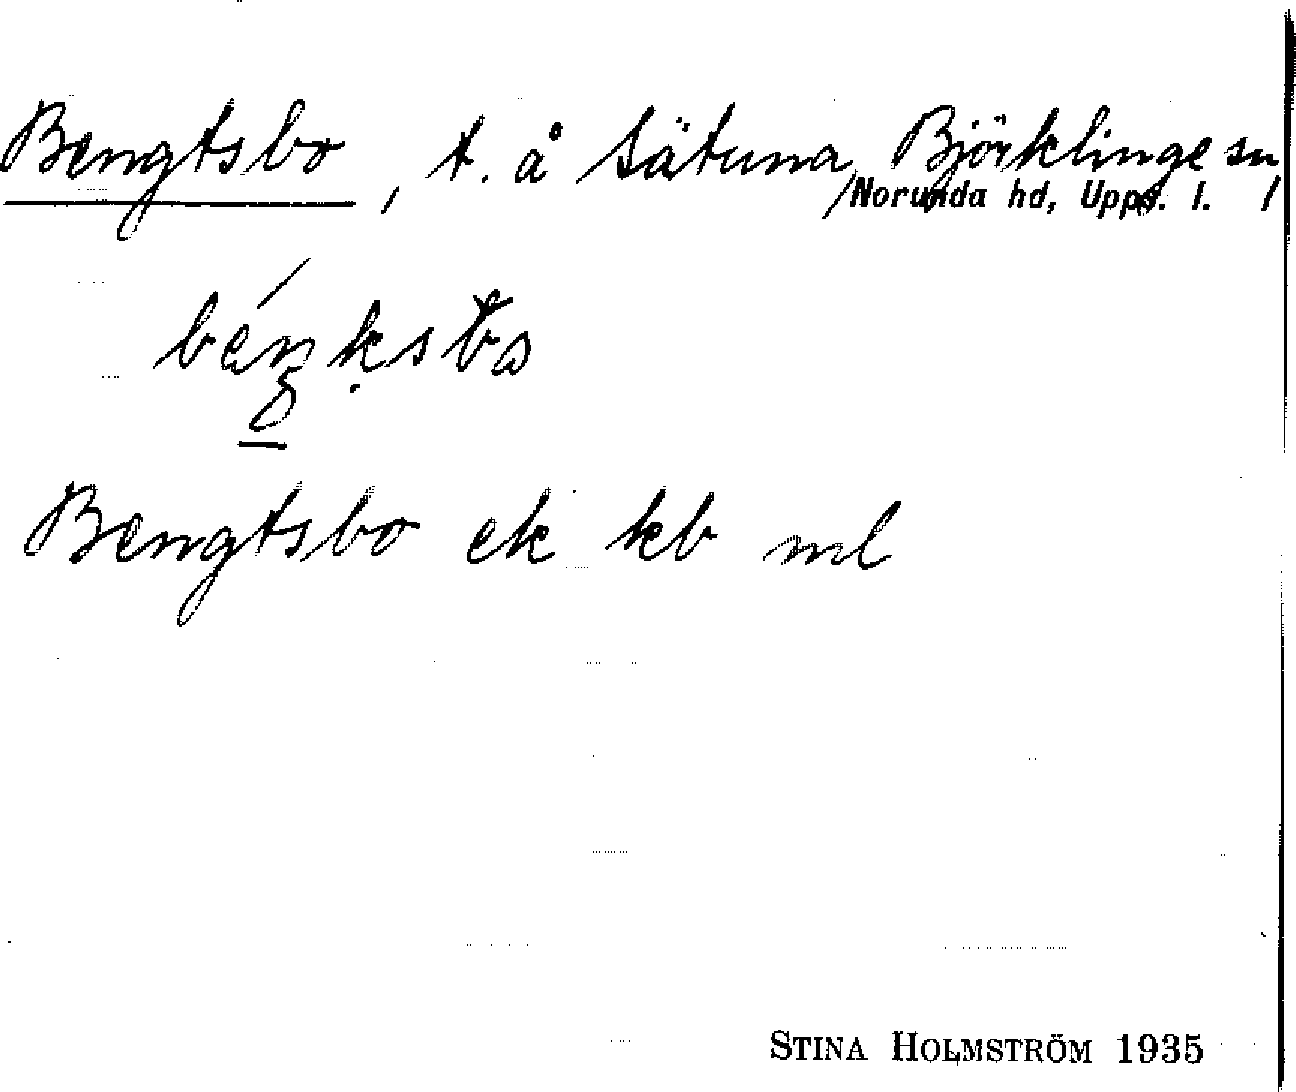 Bengtsbo, t. å Sätuna, Björklinge sn,
/Norunda hd, Upps. l. /
Bengtsbo ek kb ml
STINA HOLMSTRÖM 1935